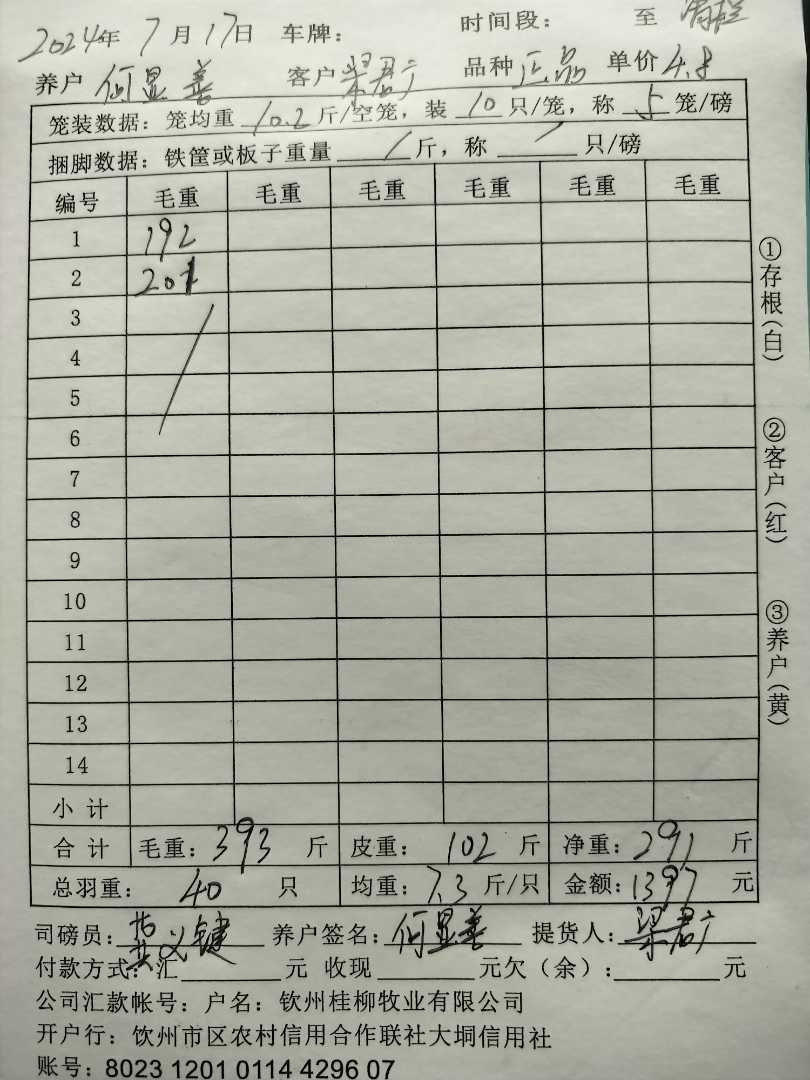 2024年 7月17日 车牌： 时间段： 至 清栏
养户 何显善 客户 梁君广 品种 正品 单价 4.8
笼装数据：笼均重 10.2 斤/空笼，装 10 只/笼，称 5 笼/磅
捆脚数据：铁筐或板子重量 / 斤，称 / 只/磅
编号 毛重 毛重 毛重 毛重 毛重 毛重
1 192
2 201
3
4
5
6
7
8
9
10
11
12
13
14
小计
合计 毛重：393 斤 皮重： 102 斤 净重：291 斤
总羽重： 40 只 均重：7.3 斤/只 金额：1397 元
司磅员： 义键 养户签名：何显善 提货人：梁君广
付款方式：汇 元 收现 元欠（余）： 元
公司汇款帐号：户名：钦州桂柳牧业有限公司
开户行：饮州市区农村信用合作联社大垌信用社
账号：8023 1201 0114 4296 07
①存根（白）
②客户（红）
③养户（黄）